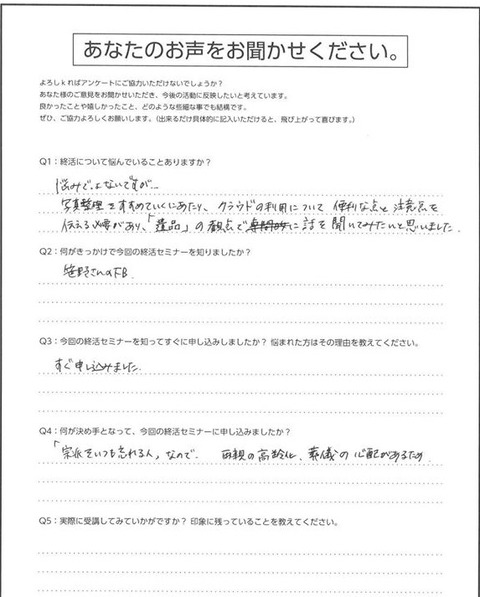 あなたのお声をお聞かせください。
よろしkればアンケートにご協力いただけないでしょうか?
あなた様のご意見をお聞かせいただき、今後の活動に反映したいと考えています。
良かったことや嬉しかったこと、どのような些細な事でも結構です。
ぜひ、ご協力よろしくお願いします。（出来るだけ具体的に記入いただけると、飛び上がって喜びます。）
Q1：終活について悩んでいることありますか?
悩みではないですが…
写真整理をすすめていくにあたり、クラウドの利用について 便利な点と注意点を
伝える必要があり、「遺品」の観点で 専門的に話を聞いてみたいと思いました。
Q2：何がきっかけで今回の終活セミナーを知りましたか?
笹野さんのFB.
Q3：今回の終活セミナーを知ってすぐに申し込みしましたか? 悩まれた方はその理由を教えてください。
すぐ申し込みました.
Q4：何が決め手となって、今回の終活セミナーに申し込みましたか?
「宗派をいつも忘れる人」なので. 両親の高齢化、葬儀の心配があるため
Q5：実際に受講してみていかがですか? 印象に残っていることを教えてください。